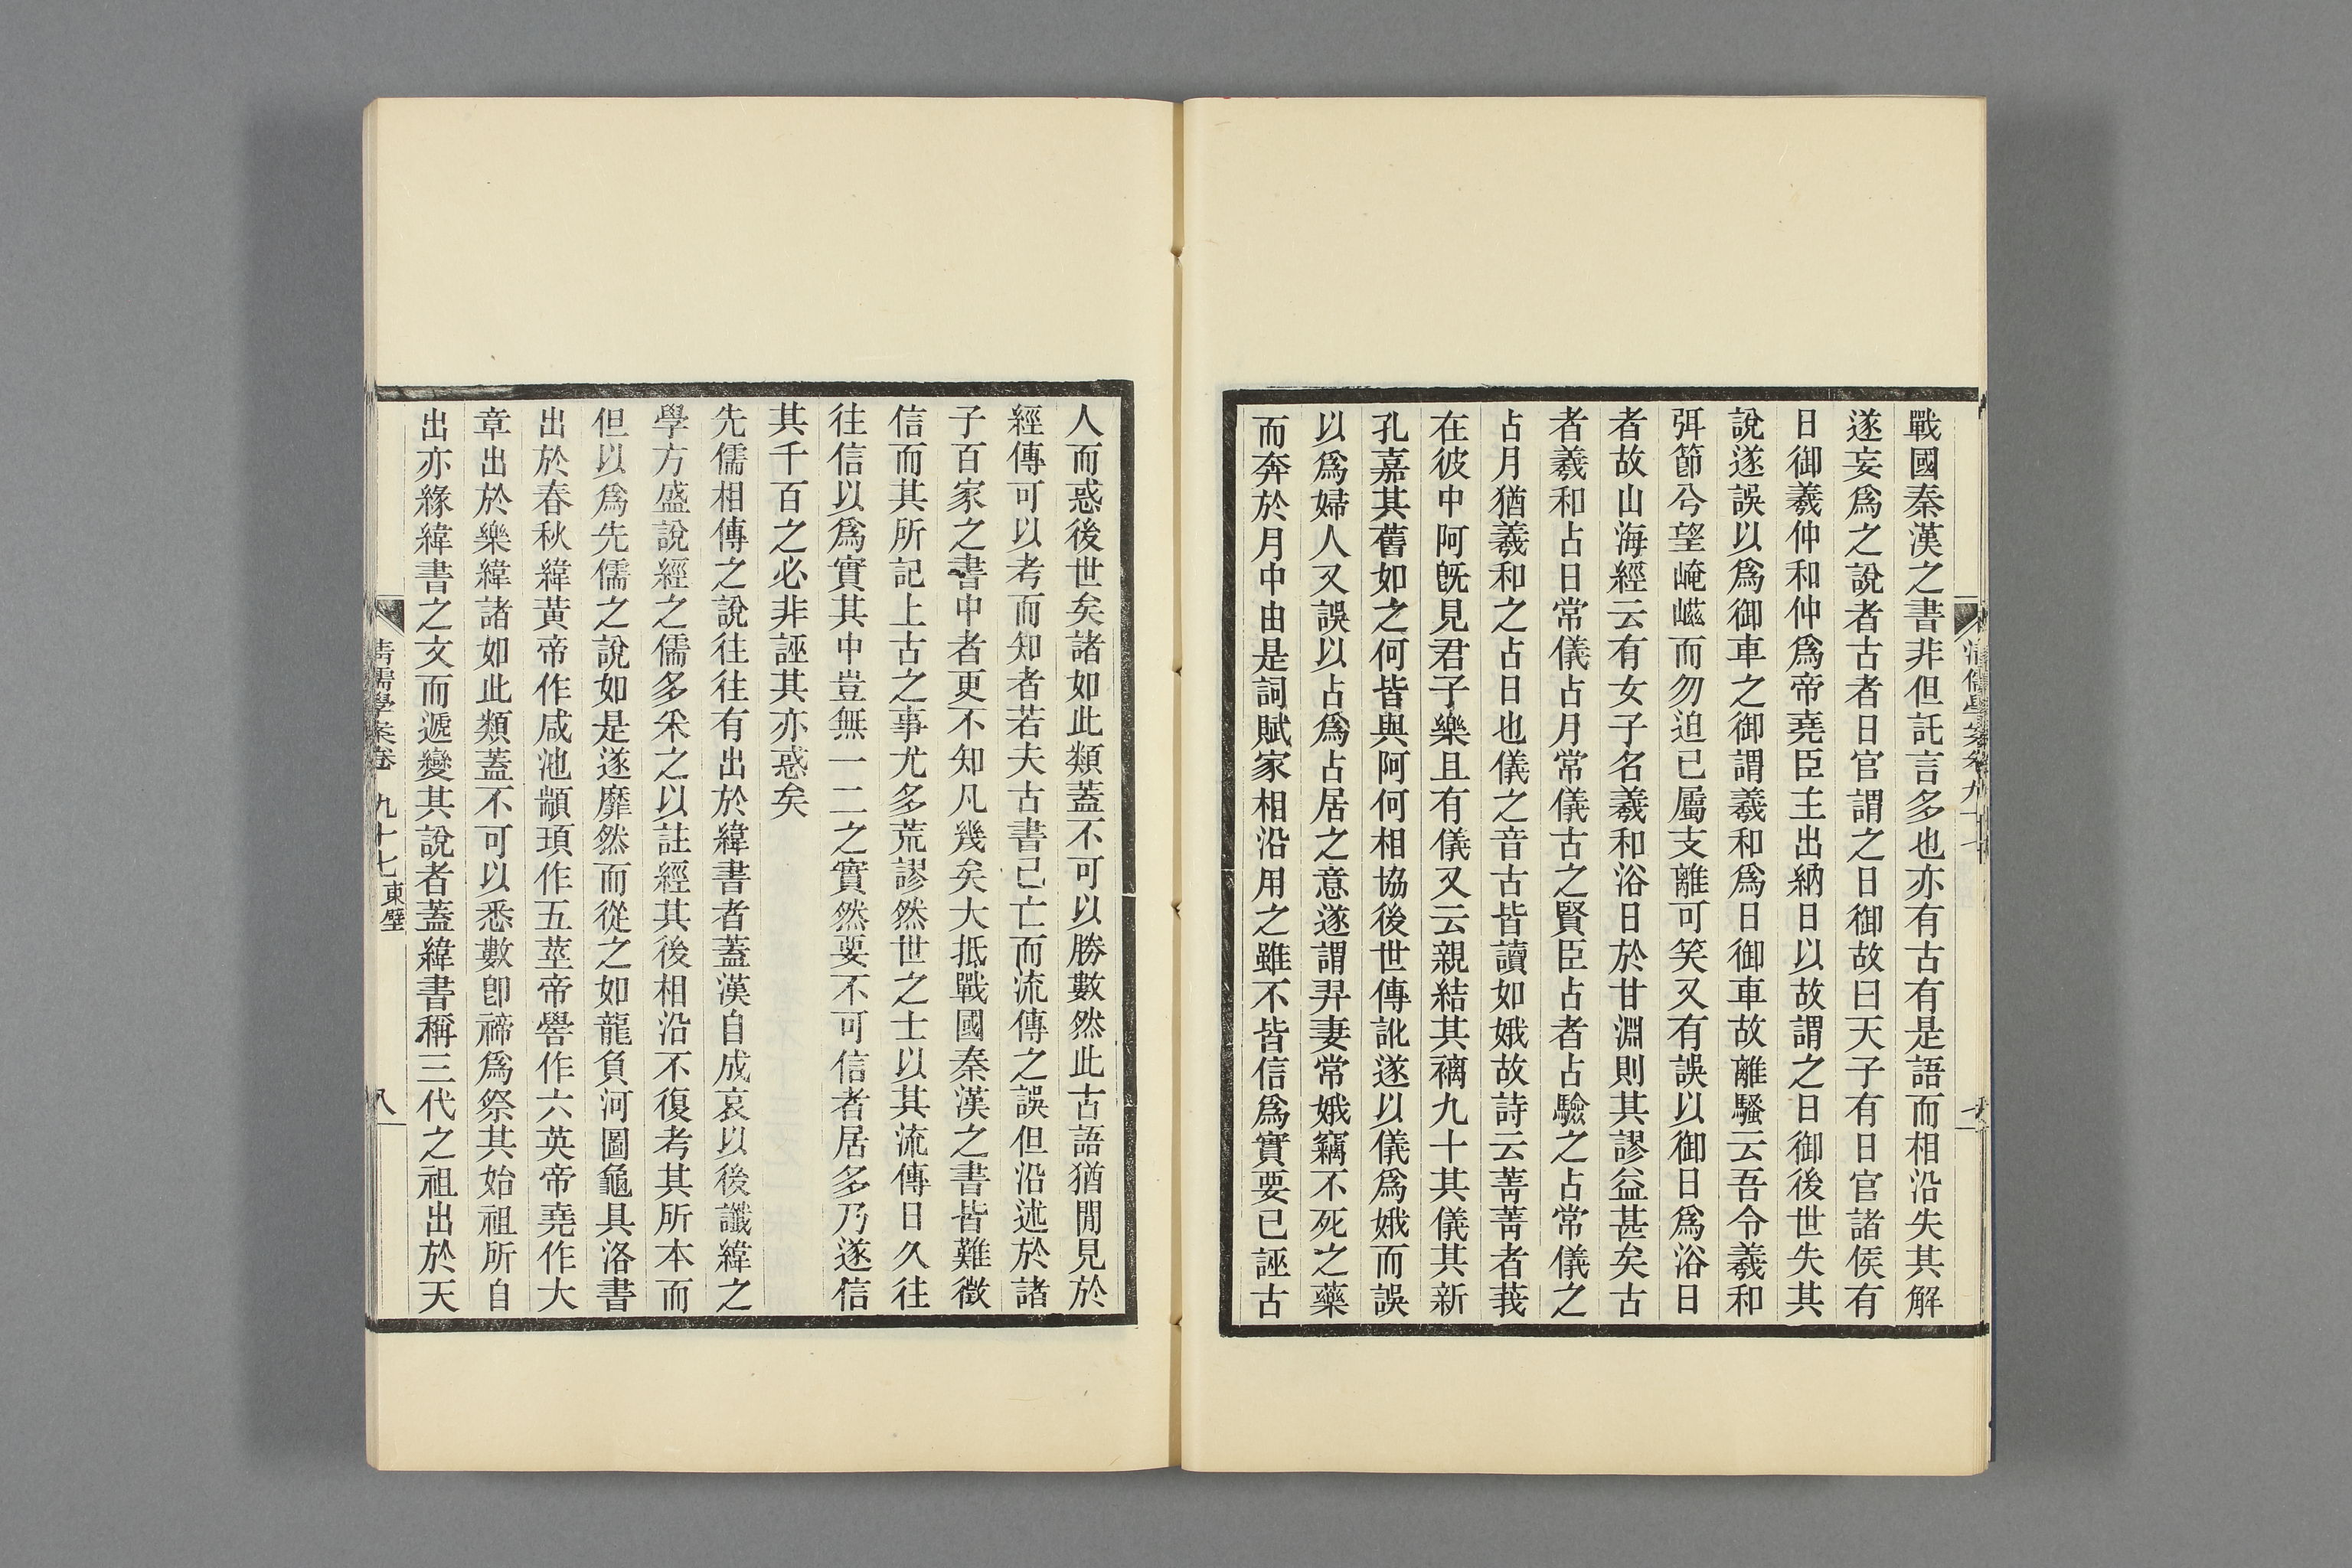 戰國秦漢之書非但託言多也亦有古有是語而相沿失其解
遂妄爲之說者古者日官謂之日御故曰天子有日官諸侯有
日御羲仲和仲爲帝堯臣主出納日以故謂之日御後世失其
說遂誤以爲御車之御謂羲和爲日御車故離騷云吾令羲和
弭節兮望崦嵫而勿迫已屬支離可笑又有誤以御日爲浴日
者故山海經云有女子名羲和浴日於甘淵則其謬益甚矣古
者羲和占日常儀占月常儀古之賢臣占者占驗之占常儀之
占月猶羲和之占日也儀之音古皆讀如娥故詩云菁菁者莪
在彼中阿旣見君子樂且有儀又云親結其褵九十其儀其新
孔嘉其舊如之何皆與阿何相協後世傳訛遂以儀爲娥而誤
以爲婦人又誤以占爲占居之意遂謂羿妻常娥竊不死之藥
而奔於月中由是詞賦家相沿用之雖不皆信爲實要已誣古
人而惑後世矣諸如此類蓋不可以勝數然此古語猶閒見於
經傳可以考而知者若夫古書已亡而流傳之誤但沿述於諸
子百家之書中者更不知凡幾矣大抵戰國秦漢之書皆難徵
信而其所記上古之事尤多荒謬然世之士以其流傳日久往
往信以爲實其中豈無一二之實然要不可信者居多乃遂信
其千百之必非誣其亦惑矣
先儒相傳之說往往有出於緯書者蓋漢自成哀以後讖緯之
學方盛說經之儒多采之以註經其後相沿不復考其所本而
但以爲先儒之說如是遂靡然而從之如龍負河圖龜具洛書
出於春秋緯黃帝作咸池顓頊作五莖帝嚳作六英帝堯作大
章出於樂緯諸如此類蓋不可以悉數卽禘爲祭其始祖所自
出亦緣緯書之文而遞變其說者蓋緯書稱三代之祖出於天
清儒學案卷九十七 東壁 八